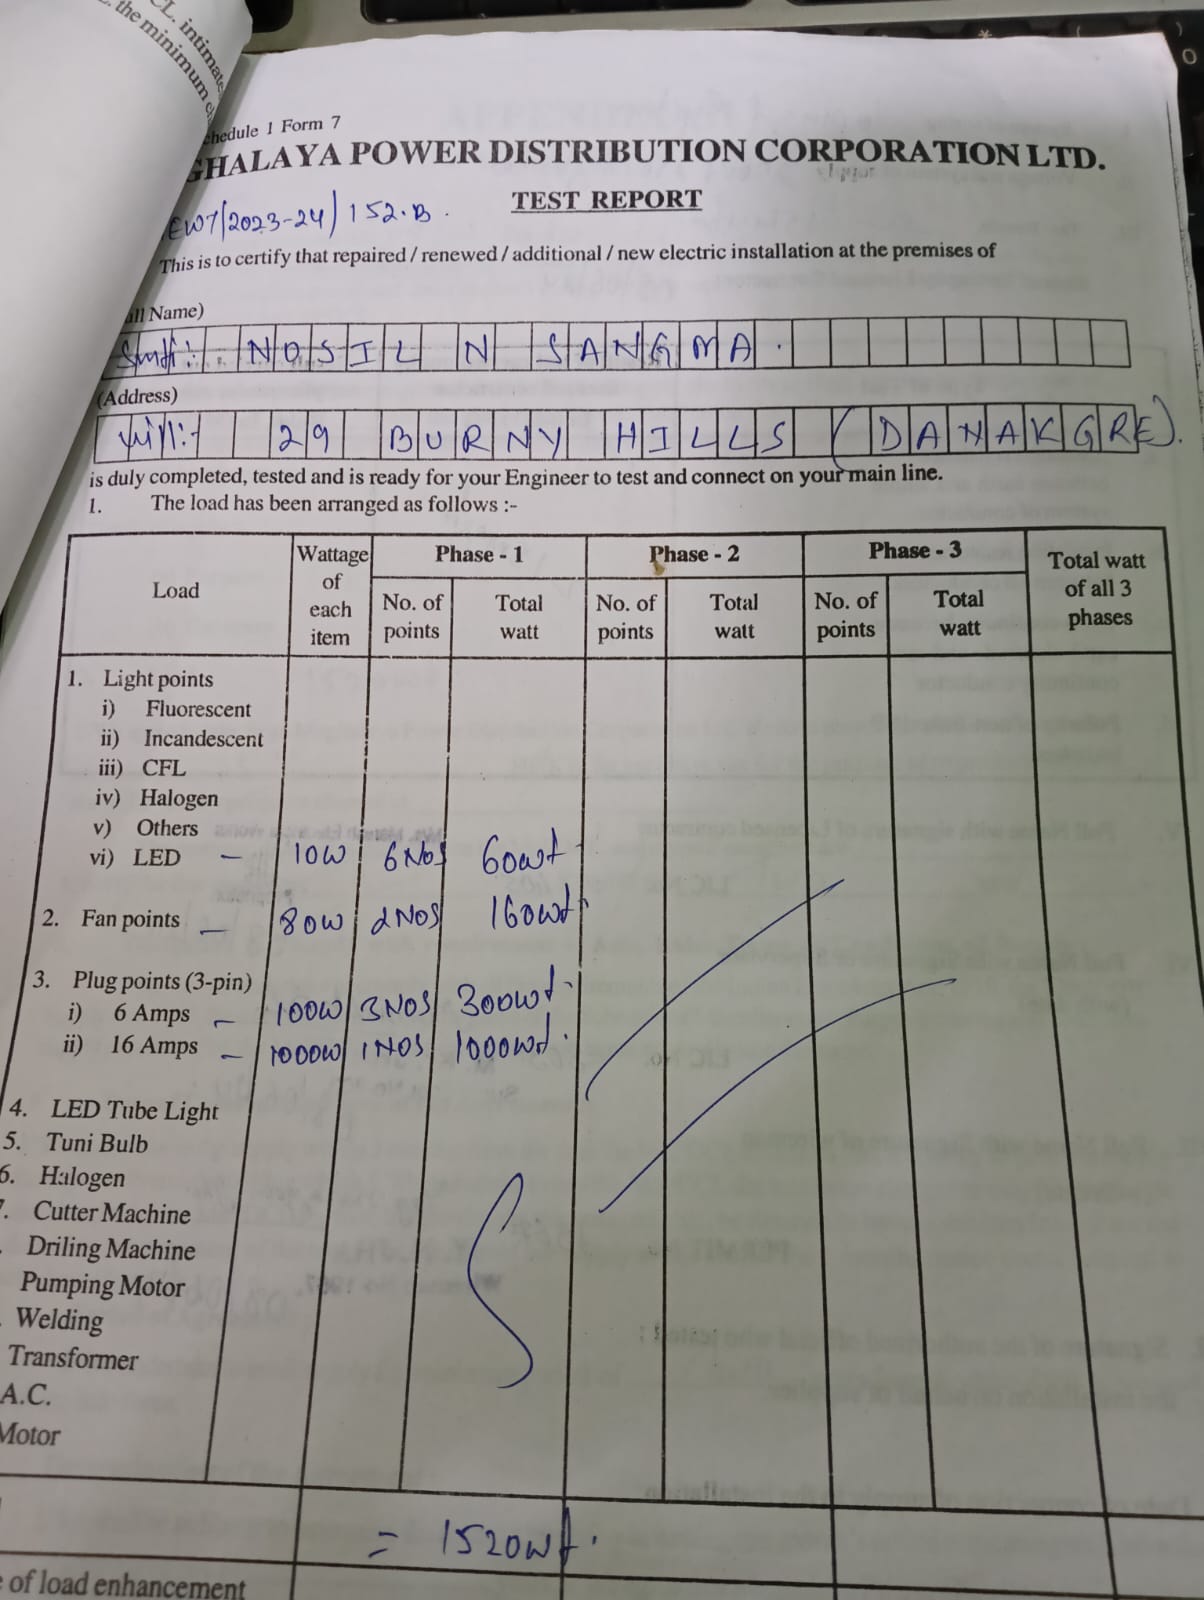 CL. intimate
the minimum c
hedule 1 Form 7
GHALAYA POWER DISTRIBUTION CORPORATION LTD.
TEST REPORT
EWT/2023-24/152.B.
This is to certify that repaired / renewed / additional / new electric installation at the premises of
ull Name)
Smti: NOSIL N SANGMA.
(Address)
Vill:- 29 BURNY HILLS (DANAKGRE).
is duly completed, tested and is ready for your Engineer to test and connect on your main line.
1. The load has been arranged as follows :-
Load Wattage of each item Phase - 1 Phase - 2 Phase - 3 Total watt of all 3 phases
No. of points Total watt No. of points Total watt No. of points Total watt
1. Light points
i) Fluorescent
ii) Incandescent
iii) CFL
iv) Halogen
v) Others
vi) LED – 10W 6NOS 60wt
2. Fan points – 80W 2NOS 160wt
3. Plug points (3-pin)
i) 6 Amps – 100W 3NOS 300wt.
ii) 16 Amps – 1000W 1NOS 1000wt.
4. LED Tube Light
5. Tuni Bulb
6. Halogen
. Cutter Machine
. Driling Machine
Pumping Motor
. Welding
Transformer
A.C.
Motor
= 1520wt.
of load enhancement